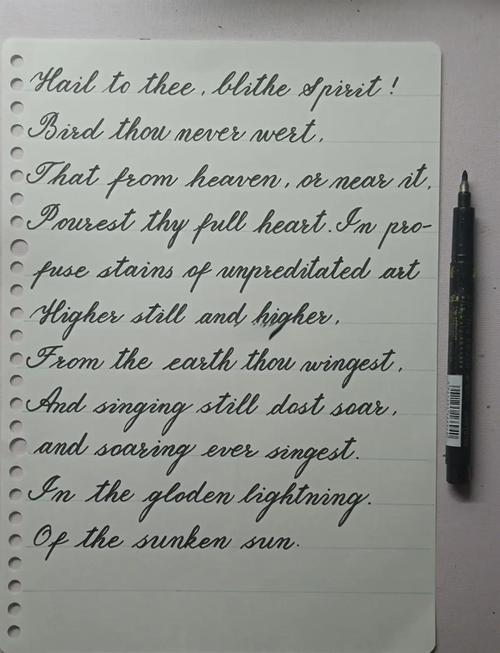 Hail to thee, blithe spirit!
Bird thou never wert,
That from heaven, or near it,
Pourest thy full heart. In pro-
fuse stains of unpreditated art
Higher still and higher,
From the earth thou wingest,
And singing still dost soar,
and soaring ever singest.
In the gloden lightning.
Of the sunken sun.